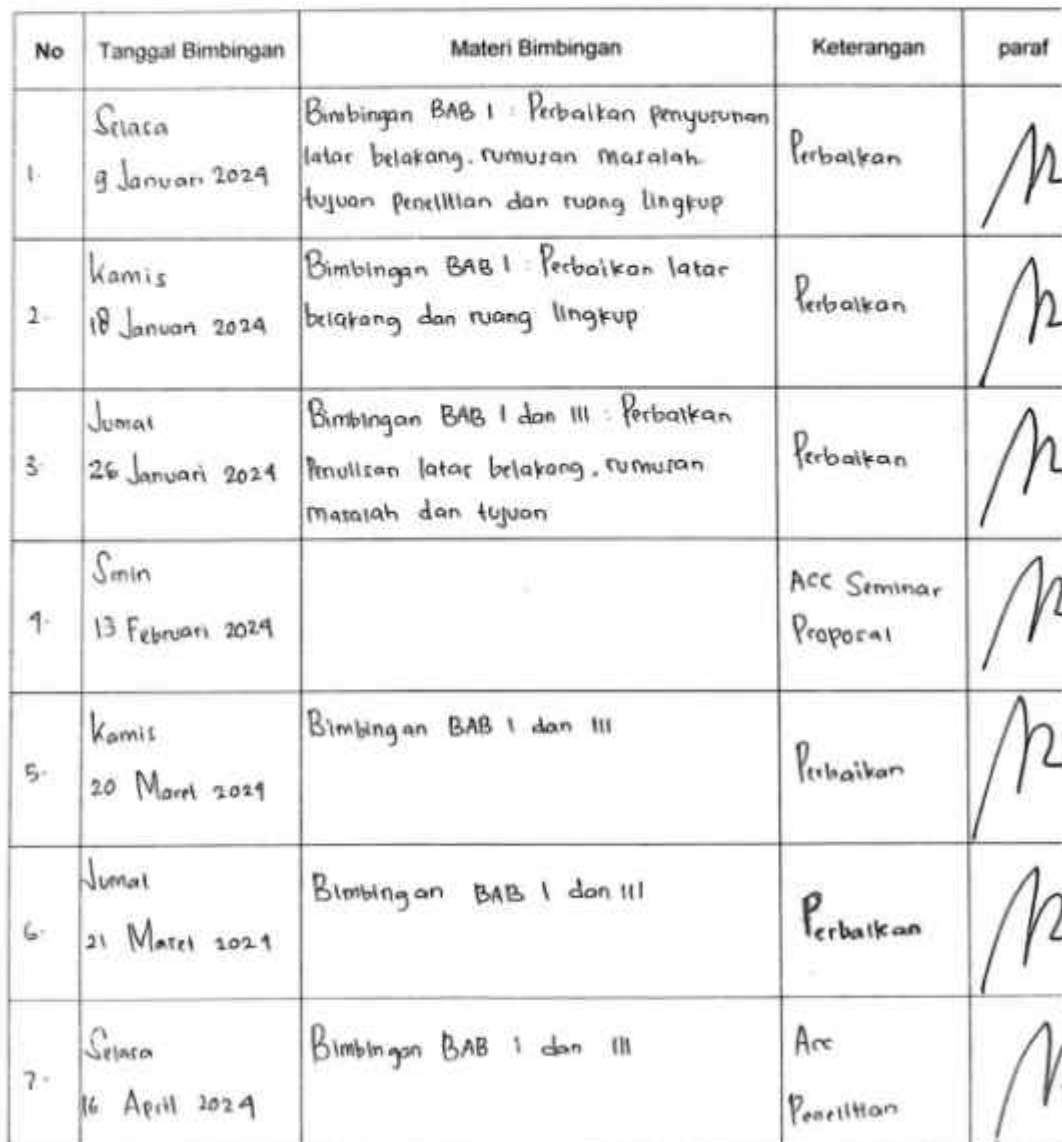 No Tanggal Bimbingan Materi Bimbingan Keterangan paraf
1. Selasa
9 Januari 2024
Bimbingan BAB I : Perbaikan penyusunan
latar belakang, rumusan masalah
tujuan Penelitian dan ruang lingkup
Perbaikan
2. Kamis
18 Januari 2024
Bimbingan BAB I : Perbaikan latar
belakang dan ruang lingkup
Perbaikan
3. Jumat
26 Januari 2024
Bimbingan BAB I dan III : Perbaikan
Penulisan latar belakang, rumusan
masalah dan tujuan
Perbaikan
4. Snin
13 Februari 2024
ACC Seminar
Proposal
5. Kamis
20 Maret 2024
Bimbingan BAB I dan III
Perbaikan
6. Jumat
21 Maret 2024
Bimbingan BAB I dan III
Perbaikan
7. Selasa
16 April 2024
Bimbingan BAB I dan III
Acc
Penelitian